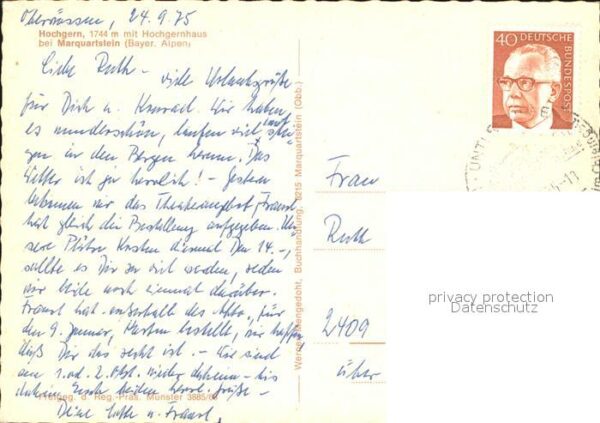 Oberwössen, 24.9.75
Hochgern, 1744 m mit Hochgernhaus
bei Marquartstein (Bayer. Alpen)
Liebe Ruth - viele Urlaubsgrüße
für Dich u. Konrad. Wir haben
es wunderschön, laufen viel, stei
gen in den Bergen herum. Das
Wetter ist ja herrlich! - Gestern
bekamen wir das Theaterangebot, Franzl
hat gleich die Bestellung aufgegeben. Un
sere Plätze kosten diesmal Dm 14.-,
sollte es Dir zu viel werden, reden
wir bitte noch einmal darüber.
Franzl hat außerhalb des Abos, für
den 9. Januar, Karten bestellt, wir hoffen
daß Dir das recht ist. - Wir sind
am 1. od. 2. Okt. wieder daheim - bis
dahin Euch beiden herzl. Grüße -
Deine Lotte u. Franzl
Verlag Werner Mengedoht, Buchhandlung, 8215 Marquartstein (Obb.)
Freigeg. d. Reg.-Präs. Münster 3885/
40 DEUTSCHE
BUNDESPOST
Frau
Ruth
2409
über
privacy protection
Datenschutz